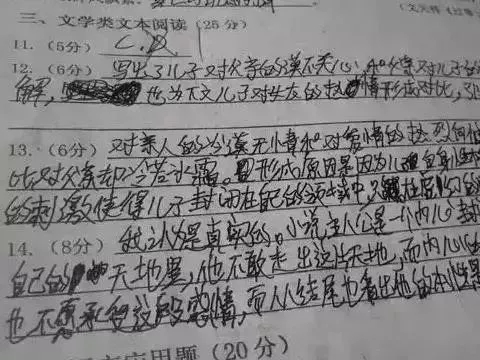 三、文学类文本阅读(25分)
11.(5分) C.D
12.(6分) 写出了儿子对父亲的漠不关心,和父亲对儿子的
解, 也为下文儿子对女友的热情形成对比,
13.(6分) 对亲人的冷漠无情和对爱情的热烈
比对父亲却冷若冰霜。形成原因是因为儿
的刺激使得儿子封闭在自己的领域中,
14.(8分) 我认为是真实的。小说主人公是一个内心封
自己的天地里,他不敢走出这片天地,而内心
也不愿承受这段感情,而从结尾也看出他的本性
应用题(20分)